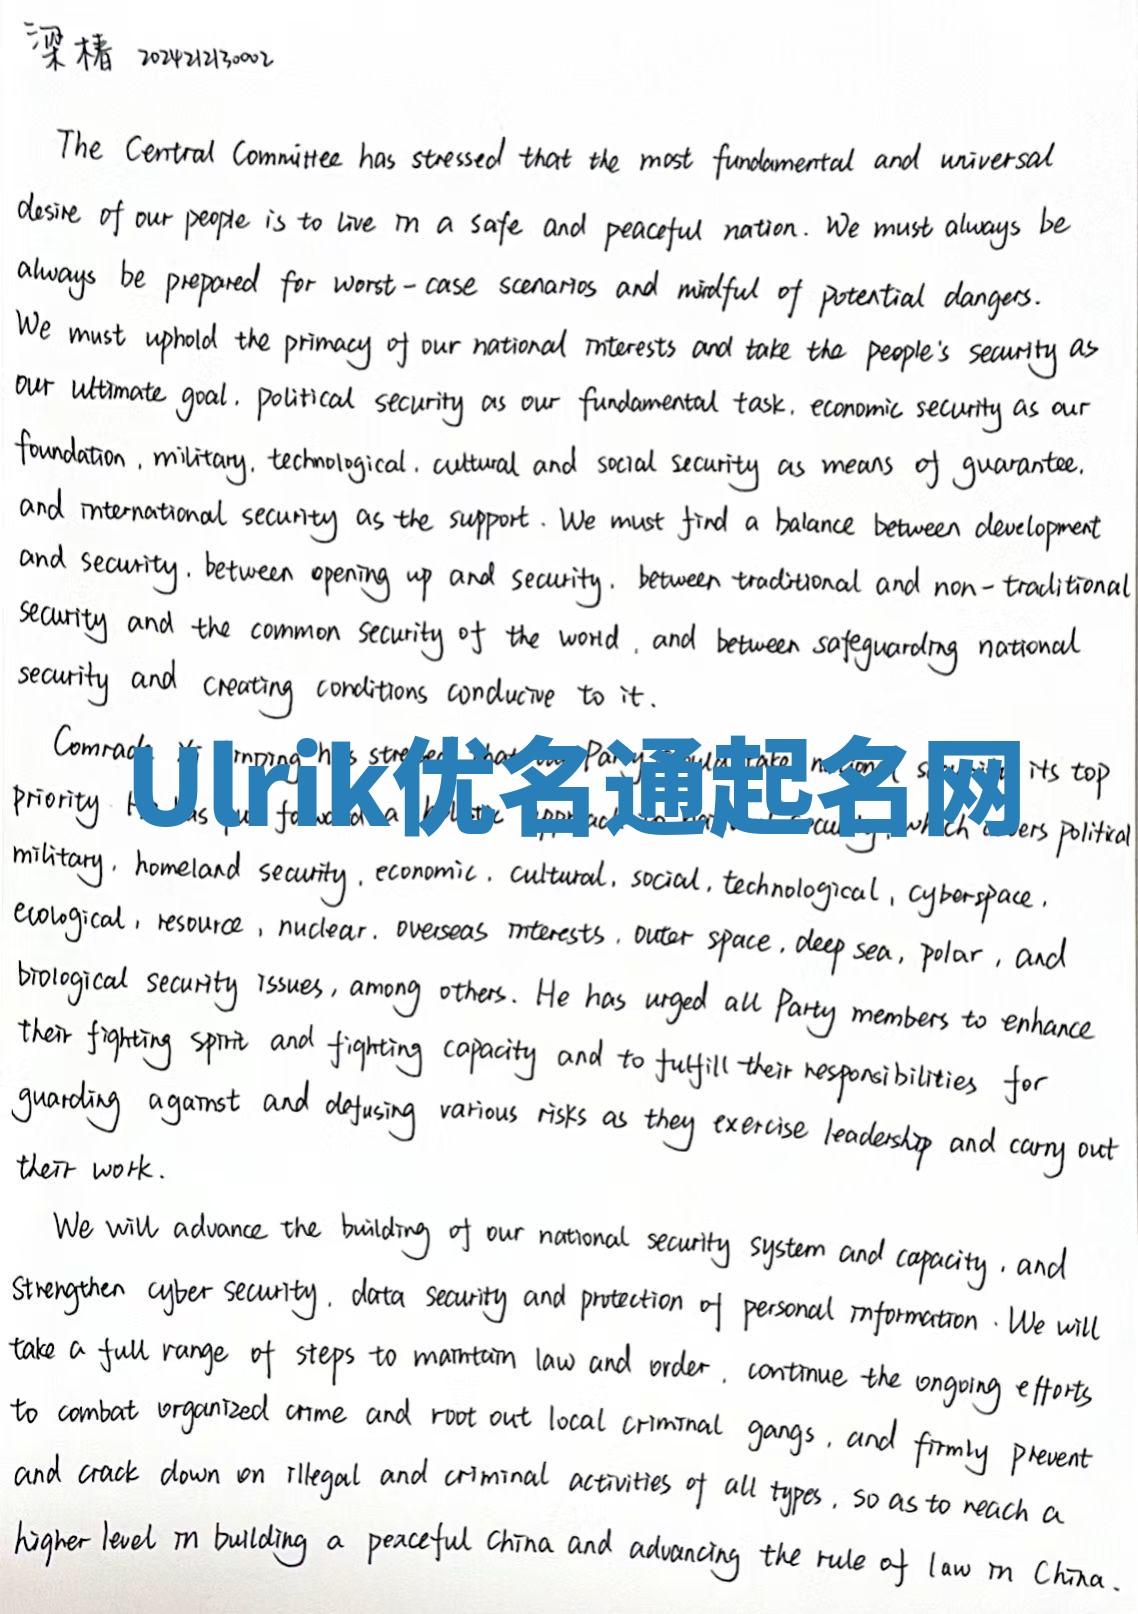 梁椿 2024212130002
The Central Committee has stressed that the most fundamental and universal
desire of our people is to live in a safe and peaceful nation. We must always be
always be prepared for worst-case scenarios and mindful of potential dangers.
We must uphold the primacy of our national interests and take the people's security as
our ultimate goal, political security as our fundamental task, economic security as our
foundation, military, technological, cultural and social security as means of guarantee,
and international security as the support. We must find a balance between development
and security, between opening up and security, between traditional and non-traditional
security and the common security of the world, and between safeguarding national
security and creating conditions conducive to it.
Comrade has stressed that Party take national its top
Ulrik优名通起名网
priority. has put forward a which covers political
military, homeland security, economic, cultural, social, technological, cyberspace,
ecological, resource, nuclear, overseas interests, outer space, deep sea, polar, and
biological security issues, among others. He has urged all Party members to enhance
their fighting spirit and fighting capacity and to fulfill their responsibilities for
guarding against and defusing various risks as they exercise leadership and carry out
their work.
We will advance the building of our national security system and capacity, and
strengthen cyber security, data security and protection of personal information. We will
take a full range of steps to maintain law and order, continue the ongoing efforts
to combat organized crime and root out local criminal gangs, and firmly prevent
and crack down on illegal and criminal activities of all types, so as to reach a
higher level in building a peaceful China and advancing the rule of law in China.